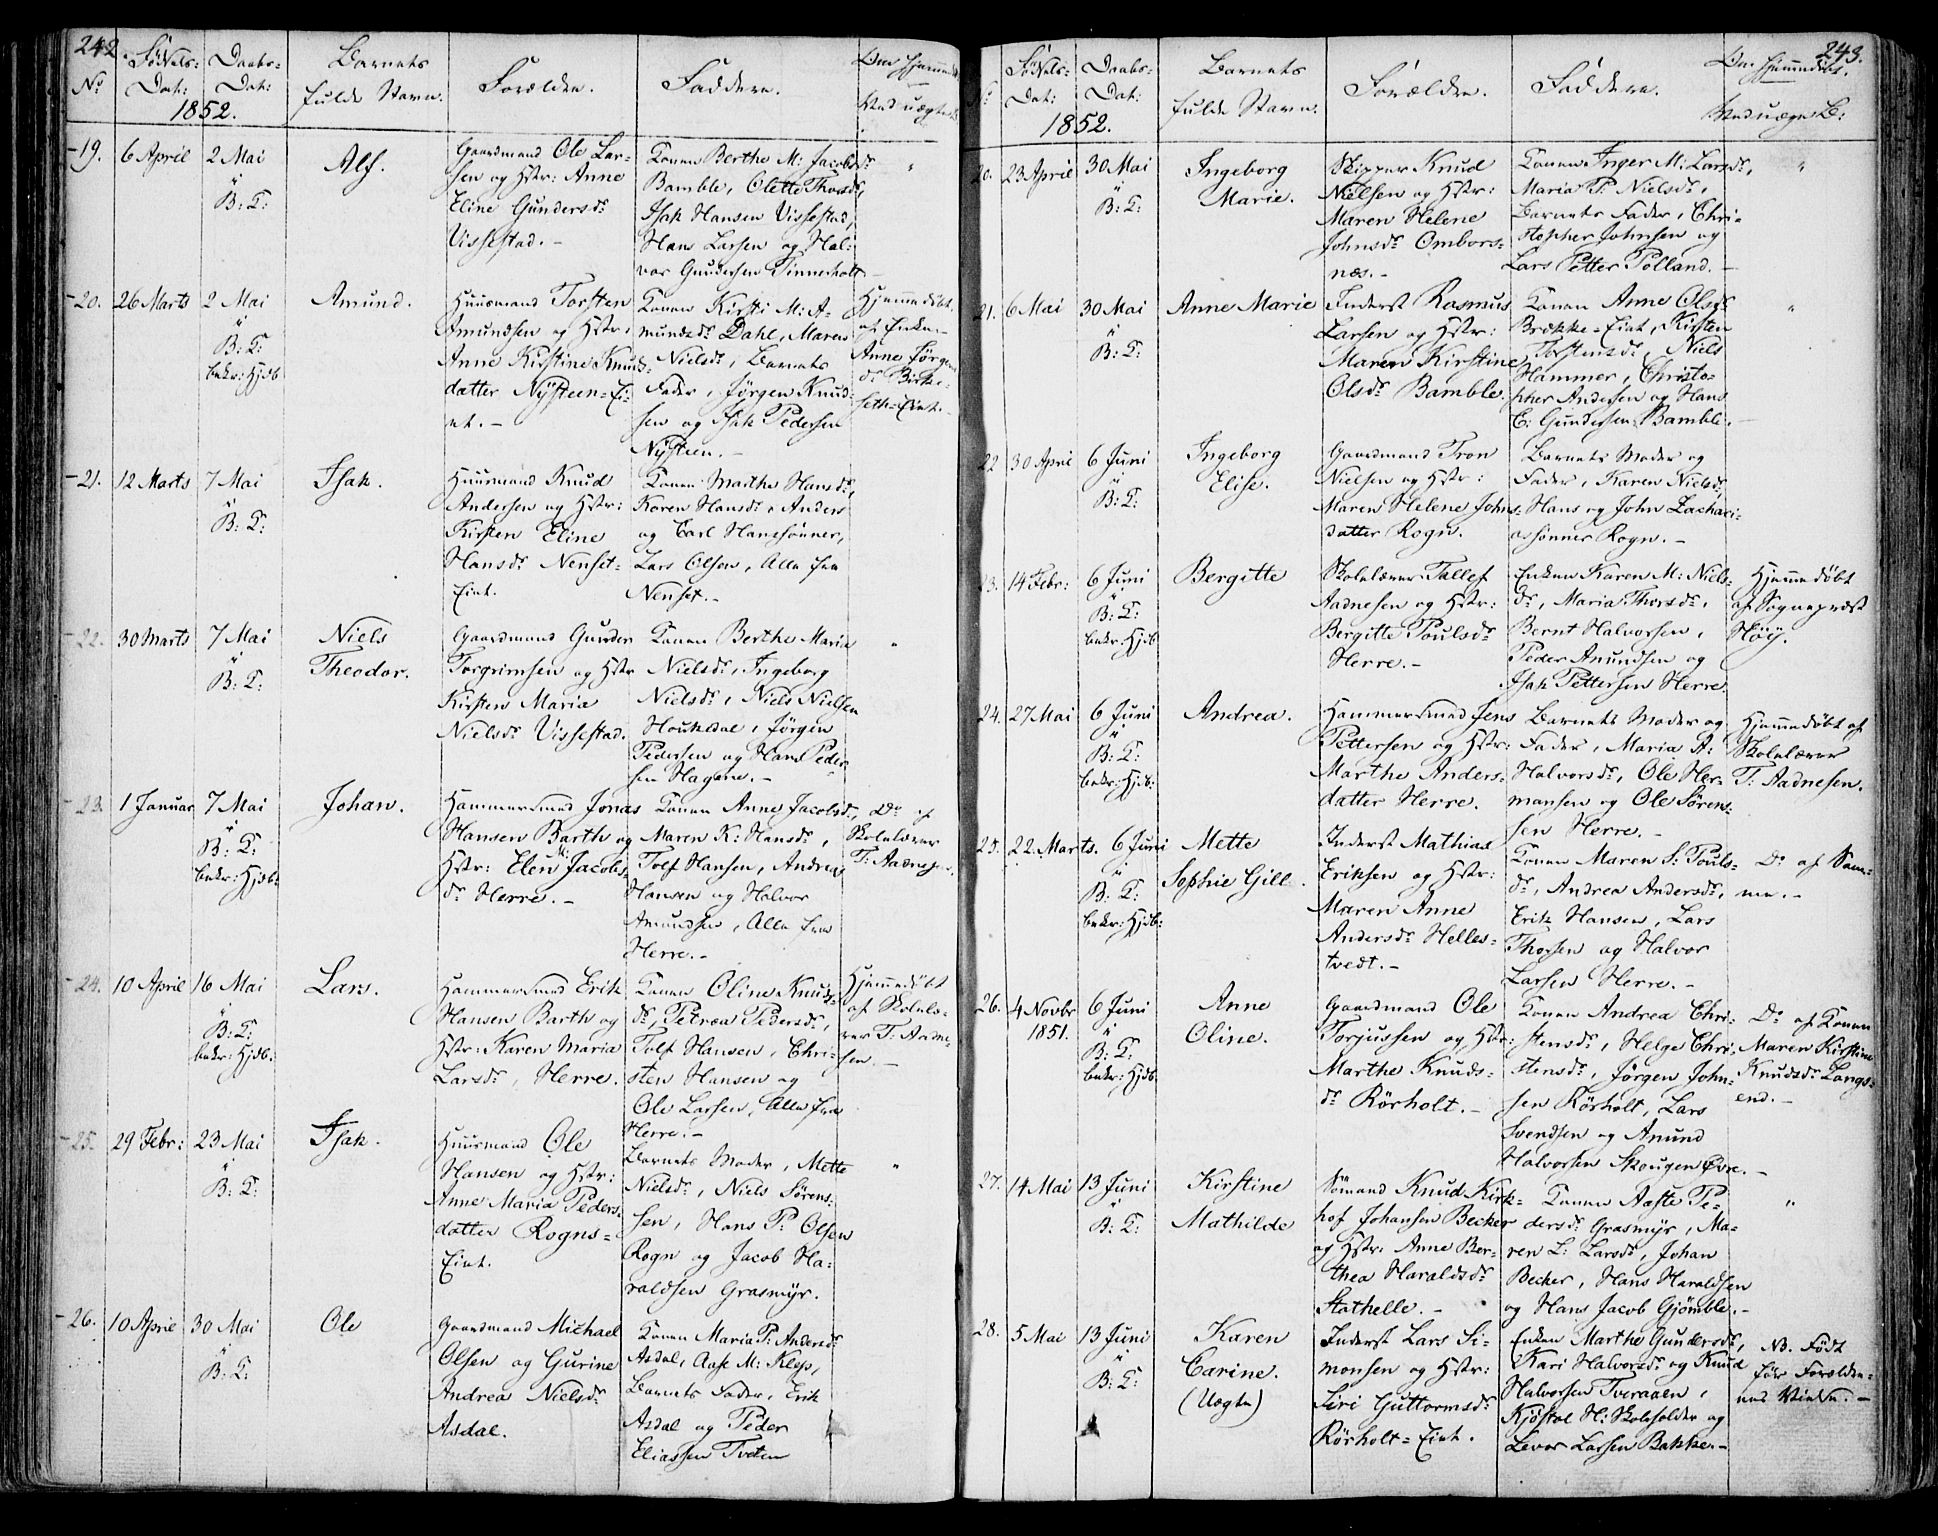 242.
No
Fødsels-
Dat:
Daabs-
Dat:
1852.
Barnets
fulde Navn.
Forældre.
Faddere.
Om hjemmed.
Med uægte
19.
6 April
2 Mai
B: T:
Alf.
Gaardmand Ole Lar-
sen og Hstr: Anne
Eline Gundersdr
Vissestad.-
Konen Berthe M: Jacobsdr
Bamble, Olette Thorsdr,
Isak Hansen Vissestad,
Hans Larsen og Hal-
vor Gundersen Tinnerholt
"
20.
26 Marts
2 Mai
B: T:
bekr: Hjdb
Amund.
Huusmand Torsten
Amundsen og Hstr:
Anne Kirstine Knuds-
datter Nÿsteen=Ei-
et.-
Konen Kirsti M: A-
mundsdr Dahl, Maren
Nielsdr, Barnets
Fader, Jørgen Knud-
sen og Isak Pedersen
Nÿsteen.-
Hjemmedøbt
af Enken
Anne Jørgens
dr Birke-
seth=Eiet.-
21.
12 Marts
7 Mai
B: T:
Isak.
Huusmand Knud
Andersen og Hstr:
Kirsten Eline
Hansdr Nenset-
Eiet.
Konen Marthe Hansdr,
Karen Hansdr, Anders
og Carl Hanssønner,
Lars Olsen, Alle fra
Nenset.-
22.
30 Marts
7 Mai
B: T:
Niels
Theodor.
Gaardmand Gunder
Torgrimsen og Hstr
Kirsten Maria
Nielsdr Vissestad.
Konen Berthe Maria
Nielsdr, Ingeborg
Nielsdr, Niels Nielsen
Houkedal, Jørgen
Pedersen og Hans Peder-
sen Hagene.-
"
23.
1 Januar
7 Mai
B: T:
bekr: Hjdb:
Johan.
Hammersmed Jonas
Hansen Barth og
Hstr: Elen M: Jacobs-
dr Herre.-
Konen Anne Jacobsdr,
Maren K: Hansdr,
Tolf Hansen, Andreas
Hansen og Halvor
Amundsen, Alle fra
Herre.-
Do af
Skolelærer
T: Aadnesen.
24.
10 April
16 Mai
B: T:
bekr: Hjdb:
Lars.
Hammersmed Erik
Hansen Barth og
Hstr: Karen Maria
Larsdr, Herre.
Konen Oline Knuds-
dr, Petrea Pedersdr,
Tolf Hansen, Chri-
sten Hansen og
Ole Larsen, Alle fra
Herre.-
Hjemmedøbt
af Skolelæ-
rer T: Aadne-
sen.-
25.
29 Febr:
23 Mai
B: T:
Isak.
Huusmand Ole
Hansen og Hstr:
Anne Maria Peders-
datter Rogns=
Eiet.
Barnets Moder, Mette
Nielsdr, Niels Sørens-
sen, Hans P: Olsen
Rogn og Jacob Ha-
raldsen Grasmÿr.
"
26.
10 April
30 Mai
B: T:
Ole
Gaardmand Michael
Olsen og Gurine
Andrea Nielsdr
Asdal.
Konen Maria P: Andersdr
Asdal, Aase M: Klep,
Barnets Fader, Erik
Asdal og Peder
Eliassen Tveten
243.
No
Fødsels-
Dat:
Daabs-
Dat:
1852.
Barnets
fulde Navn.
Forældre.
Faddere.
Om hjemmedøbt.
Med uægte B:
20.
23 April
30 Mai
B: T:
Ingeborg
Marie.
Skipper Knud
Nielsen og Hstr:
Maren Helene
Johnsdr Ombors-
næs.-
Konen Inger M: Larsdr,
Maria P: Nielsdr,
Barnets Fader, Chri-
stopher Johnsen og
Lars Petter Tolland.-
"
21.
6 Mai
30 Mai
B: T:
Anne Marie
Inderst Rasmus
Larsen og Hstr:
Maren Kirstine
Olsdr Bamble.
Konen Anne Olsdr
Brække=Eiet, Kirsten
Torstensdr, Niels
Hammer, Christo-
pher Andersen og Hans
E: Gundersen Bamble.-
"
22
30 April
6 Juni
B: T:
Ingeborg
Elise.
Gaardmand Tron
Nielsen og Hstr:
Maren Helene Johns-
datter Rogn.
Barnets Moder og
Fader, Karen Nielsdr,
Hans og John Zachari-
assønner Rogn.-
23.
14 Febr:
6 Juni
B: T:
bekr: Hjdb
Bergitte
Skolelærer Tallef
Aadnesen og Hstr:
Bergitte Poulsdr
Herre.-
Enken Karen M: Niels-
dr, Maria Thorsdr,
Bernt Halvorsen,
Peder Amundsen og
Isak Pettersen Herre.
Hjemmedøbt
af Sognepræst
Høÿ.
24.
27 Mai
6 Juni
B: T:
bekr: Hjdb:
Andrea.
Hammersmed Jens
Pettersen og Hstr:
Marthe Anders-
datter Herre.
Barnets Moder og
Fader, Maria A:
Halvorsdr, Ole Her-
mansen og Ole Sørens-
sen Herre.-
Hjemmedøbt af
Skolelærer
T: Aadnesen.
25.
22 Marts.
6 Juni
B: T:
bekr: Hjdb:
Mette
Sophie Gill.
Inderst Mathias
Eriksen og Hstr:
Maren Anne
Andersdr Helles-
tvedt.-
Konen Maren S: Pouls-
dr, Andrea Andersdr,
Erik Hansen, Lars
Thorsen og Halvor
Larsen Herre.-
Do af Sam-
me.-
26.
4 Novbr
1851.
6 Juni
B: T:
bekr: Hjdb.
Anne
Oline.
Gaardmand Ole
Torjussen og Hstr:
Marthe Knuds-
dr Rörholt.-
Konen Andrea Chri-
stensdr, Helge Chri-
stensdr, Jørgen John-
sen Rörholt, Lars
Svendsen og Anund
Halvorsen Skougen Øvre.-
Do af Konen
Maren Kirstine
Knudsdr Langs-
end.-
27.
14 Mai
13 Juni
B: T:
Kirstine
Mathilde
Sömand Knud Kirk-
hof Johansen Becker
og Hstr: Anne Ber-
thea Haraldsdr
Stathelle.-
Konen Aaste Pe-
dersdr Grasmÿr, Ma-
ren L: Larsdr, Johan
Becker, Hans Haraldsen
og Hans Jacob Gjömble.-
"
28.
5 Mai
13 Juni
B: T:
Karen
Carine.
(Uægte)
Inderst Lars Si-
monsen og Hstr:
Siri Guttormsdr
Rörholt=Eiet.
Enken Marthe Gundersdr,
Kari Halvorsdr og Knud
Halvorsen Tveraaen,
Kjöstol H: Skoleholder og
Levor Larsen Bakke.-
NB. Født
før Forældre-
nes Vielse.-